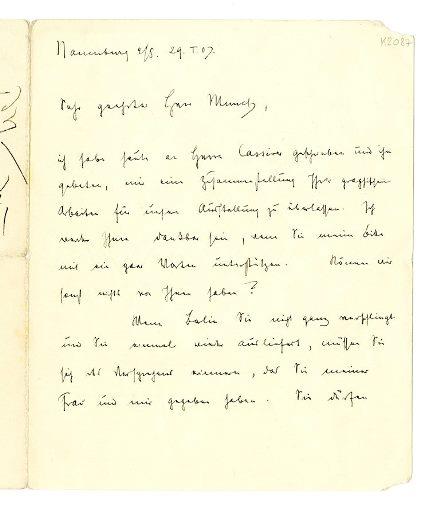 K2087
Naumburg a/S. 29.I.07.
Sehr geehrter Herr Munch,
ich habe heute an Herrn Cassirer geschrieben und ihn
gebeten, mir eine Zusammenstellung Ihrer graphischen
Arbeiten für unsere Ausstellung zu überlassen. Ich
werde Ihnen dankbar sein, wenn Sie meine Bitte
mit ein paar Worten unterstützen. Können wir
sonst nichts von Ihnen haben?
Wenn Berlin Sie nicht ganz verschlingt
und Sie einmal wieder ausliefert, müssen Sie
sich des Versprechens erinnern, das Sie meiner
Frau und mir gegeben haben. Sie dürfen